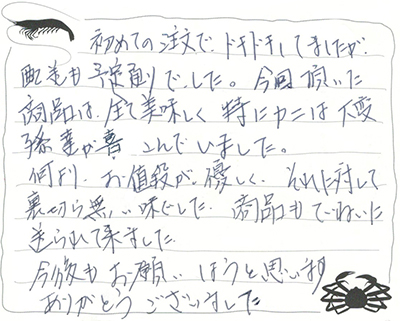 初めての注文で、ドキドキしてましたが、
配送も予定通りでした。今回頂いた
商品は、全て美味しく 特にカニは大変
孫達が喜こんでいました。
何より、お値段が、優しく、それに対して
裏切ら無い味でした。商品もていねいに
送られて来ました。
今後もお願い 思います
ありがとうございました